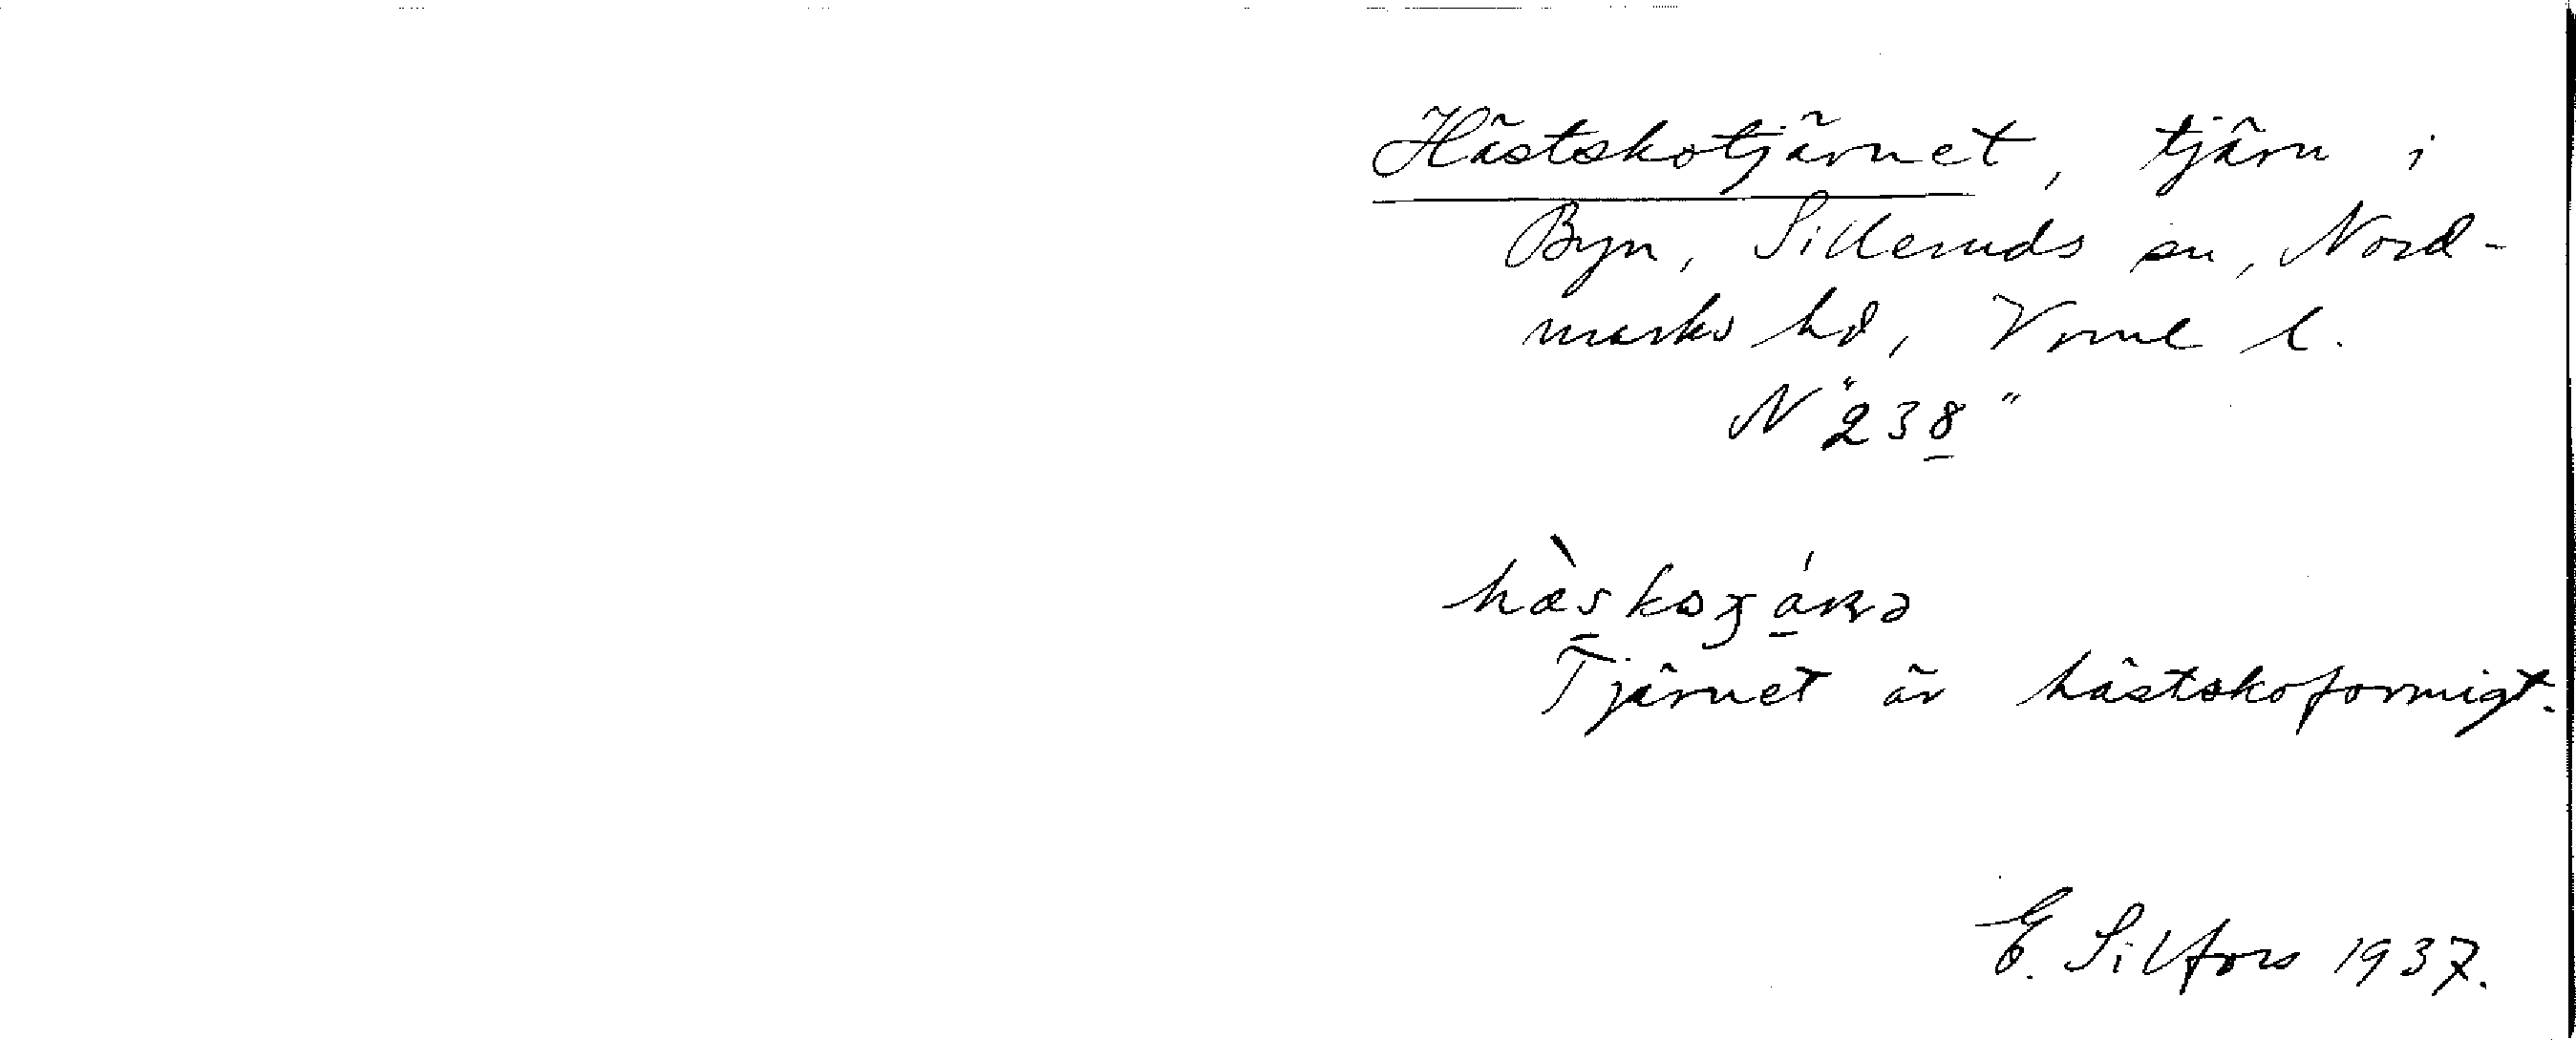 Hästskotjärnet, tjärn i
Byn, Silleruds sn, Nord-
marks hd, Vrml l.
N "238"
Tjärnet är hästskoformigt.
E. Silfors 1937.